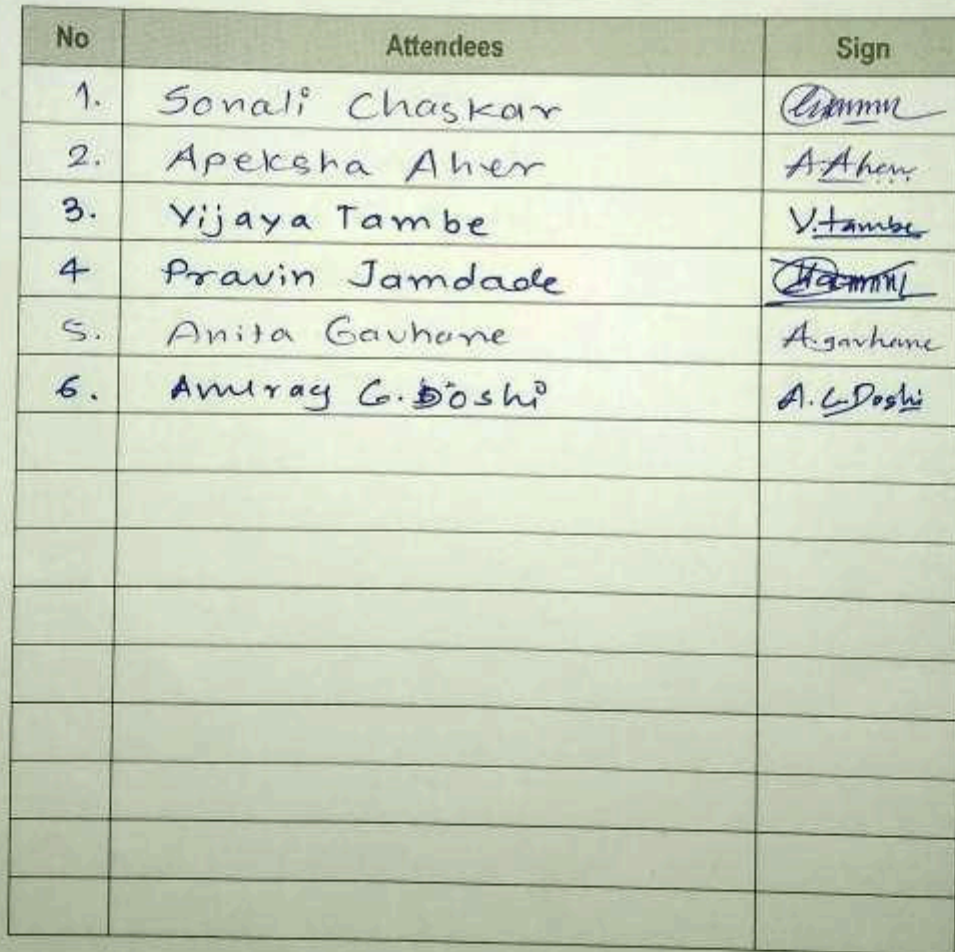 No Attendees Sign
1. Sonali Chaskar
2. Apeksha Aher A.Aher
3. Vijaya Tambe V.tambe
4 Pravin Jamdade
5. Anita Gavhane A.gavhane
6. Anurag G. Doshi A.G.Doshi